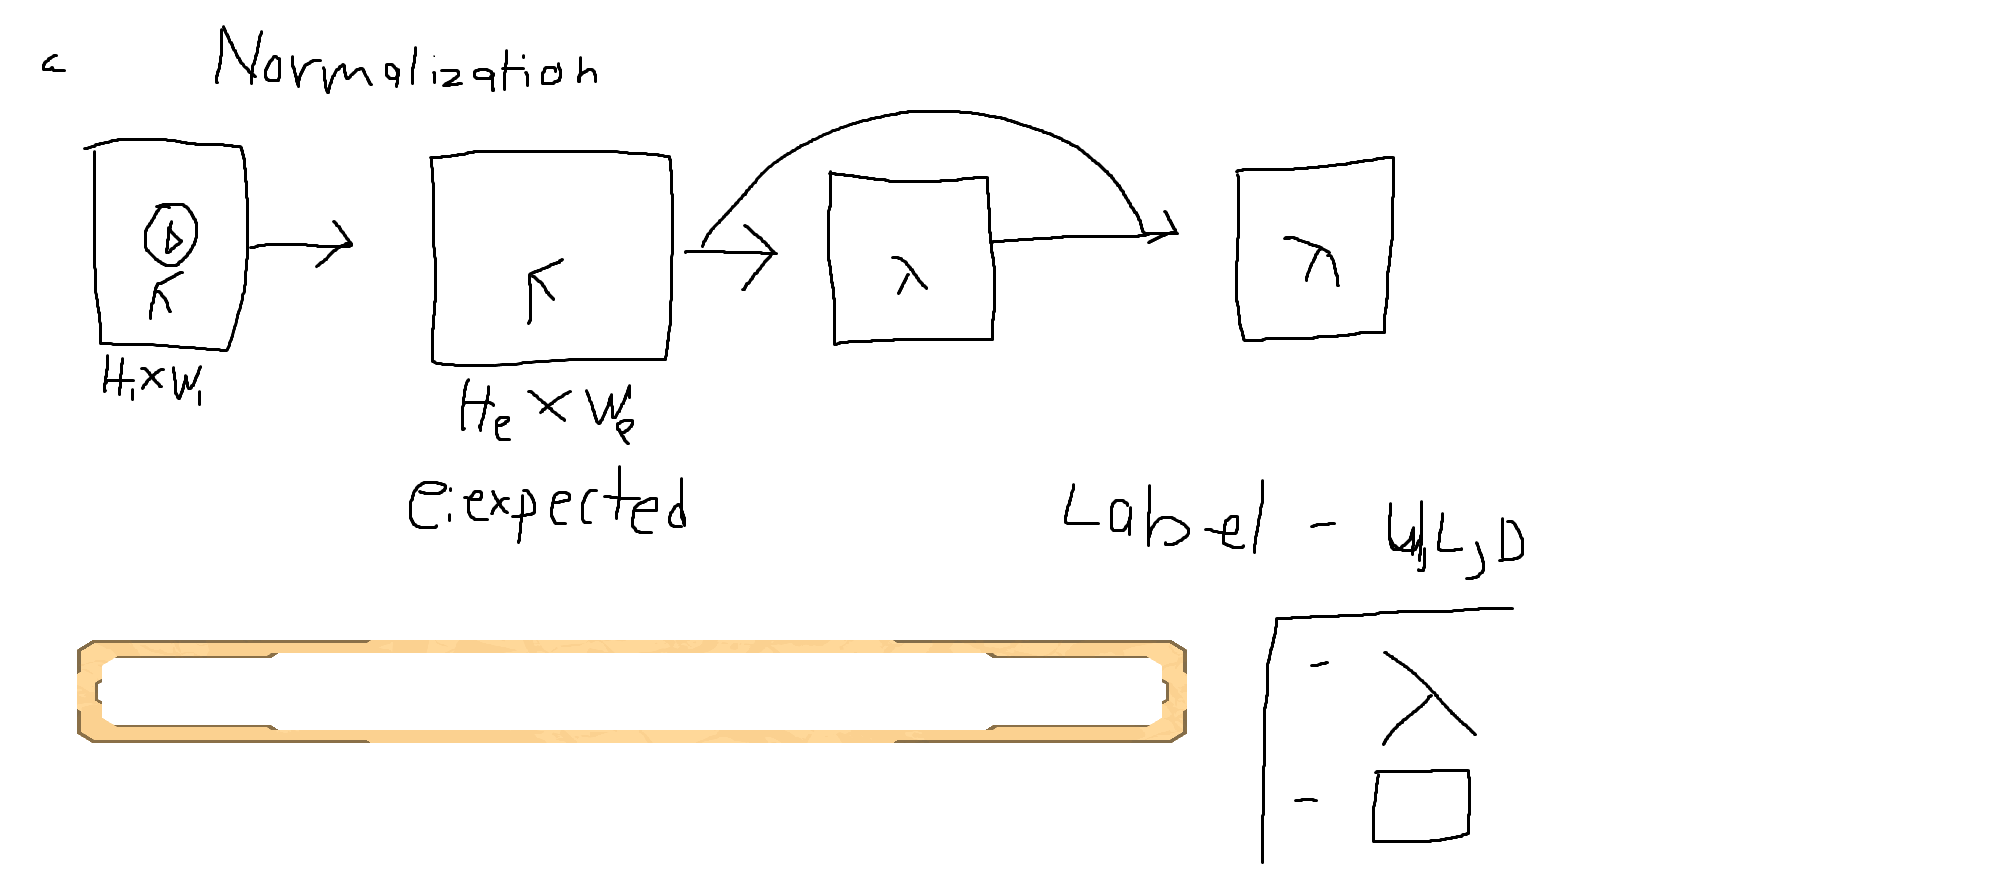 Normalization
H₁×W₁
Hₑ×Wₑ
e:expected
Label - U,L,D
- λ
-